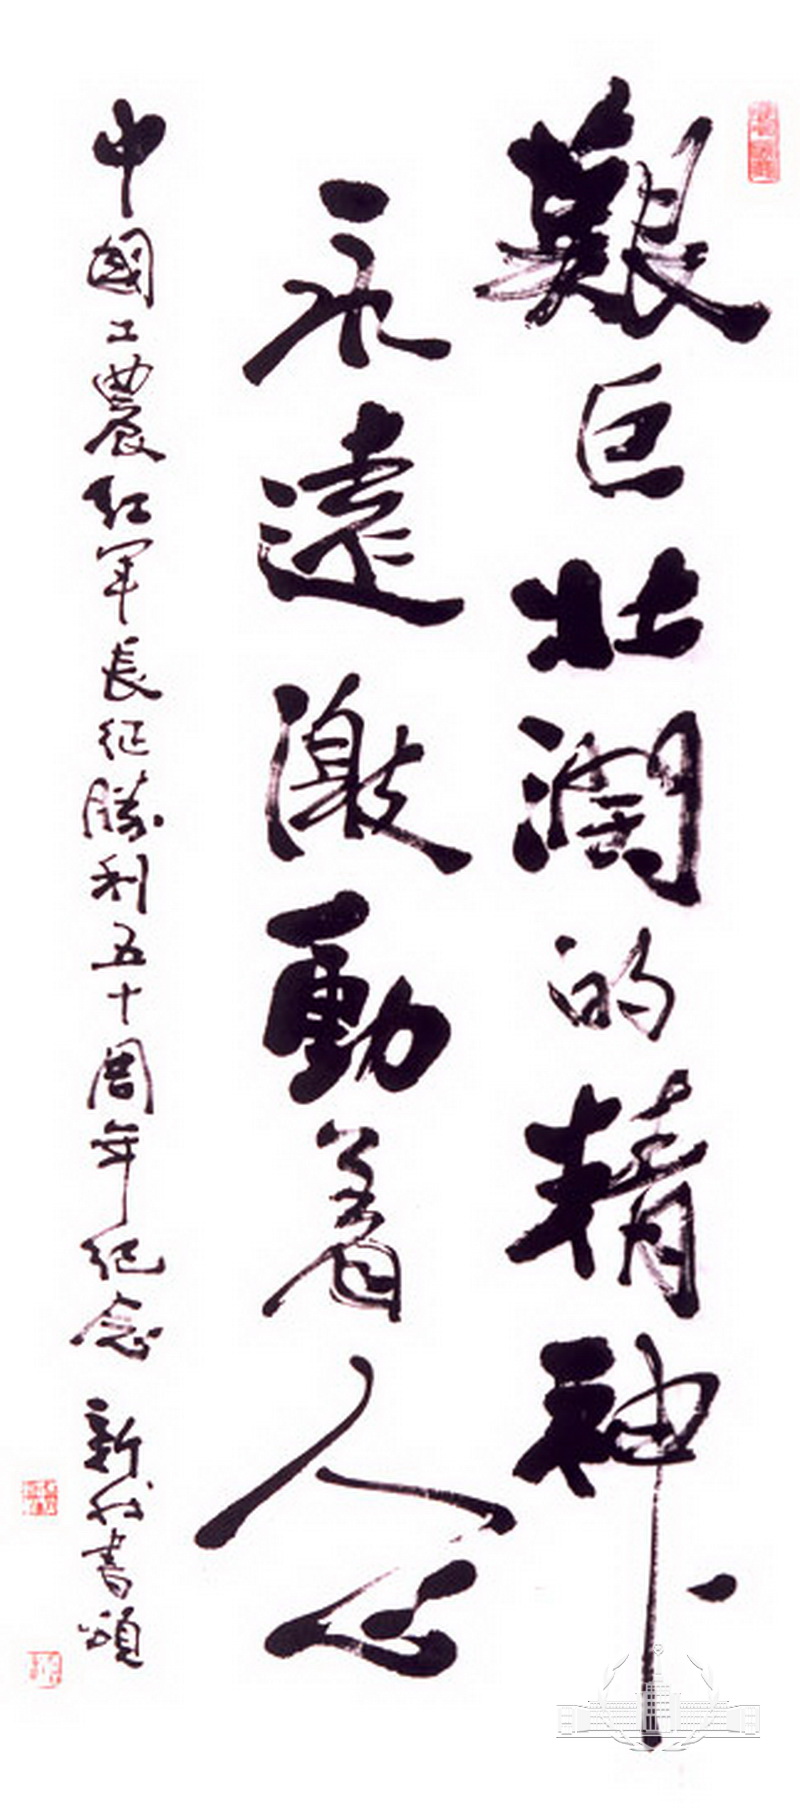 艱巨壯濶的精神
永遠激動着人心
中國工農紅軍長征勝利五十周年紀念 新 書頌